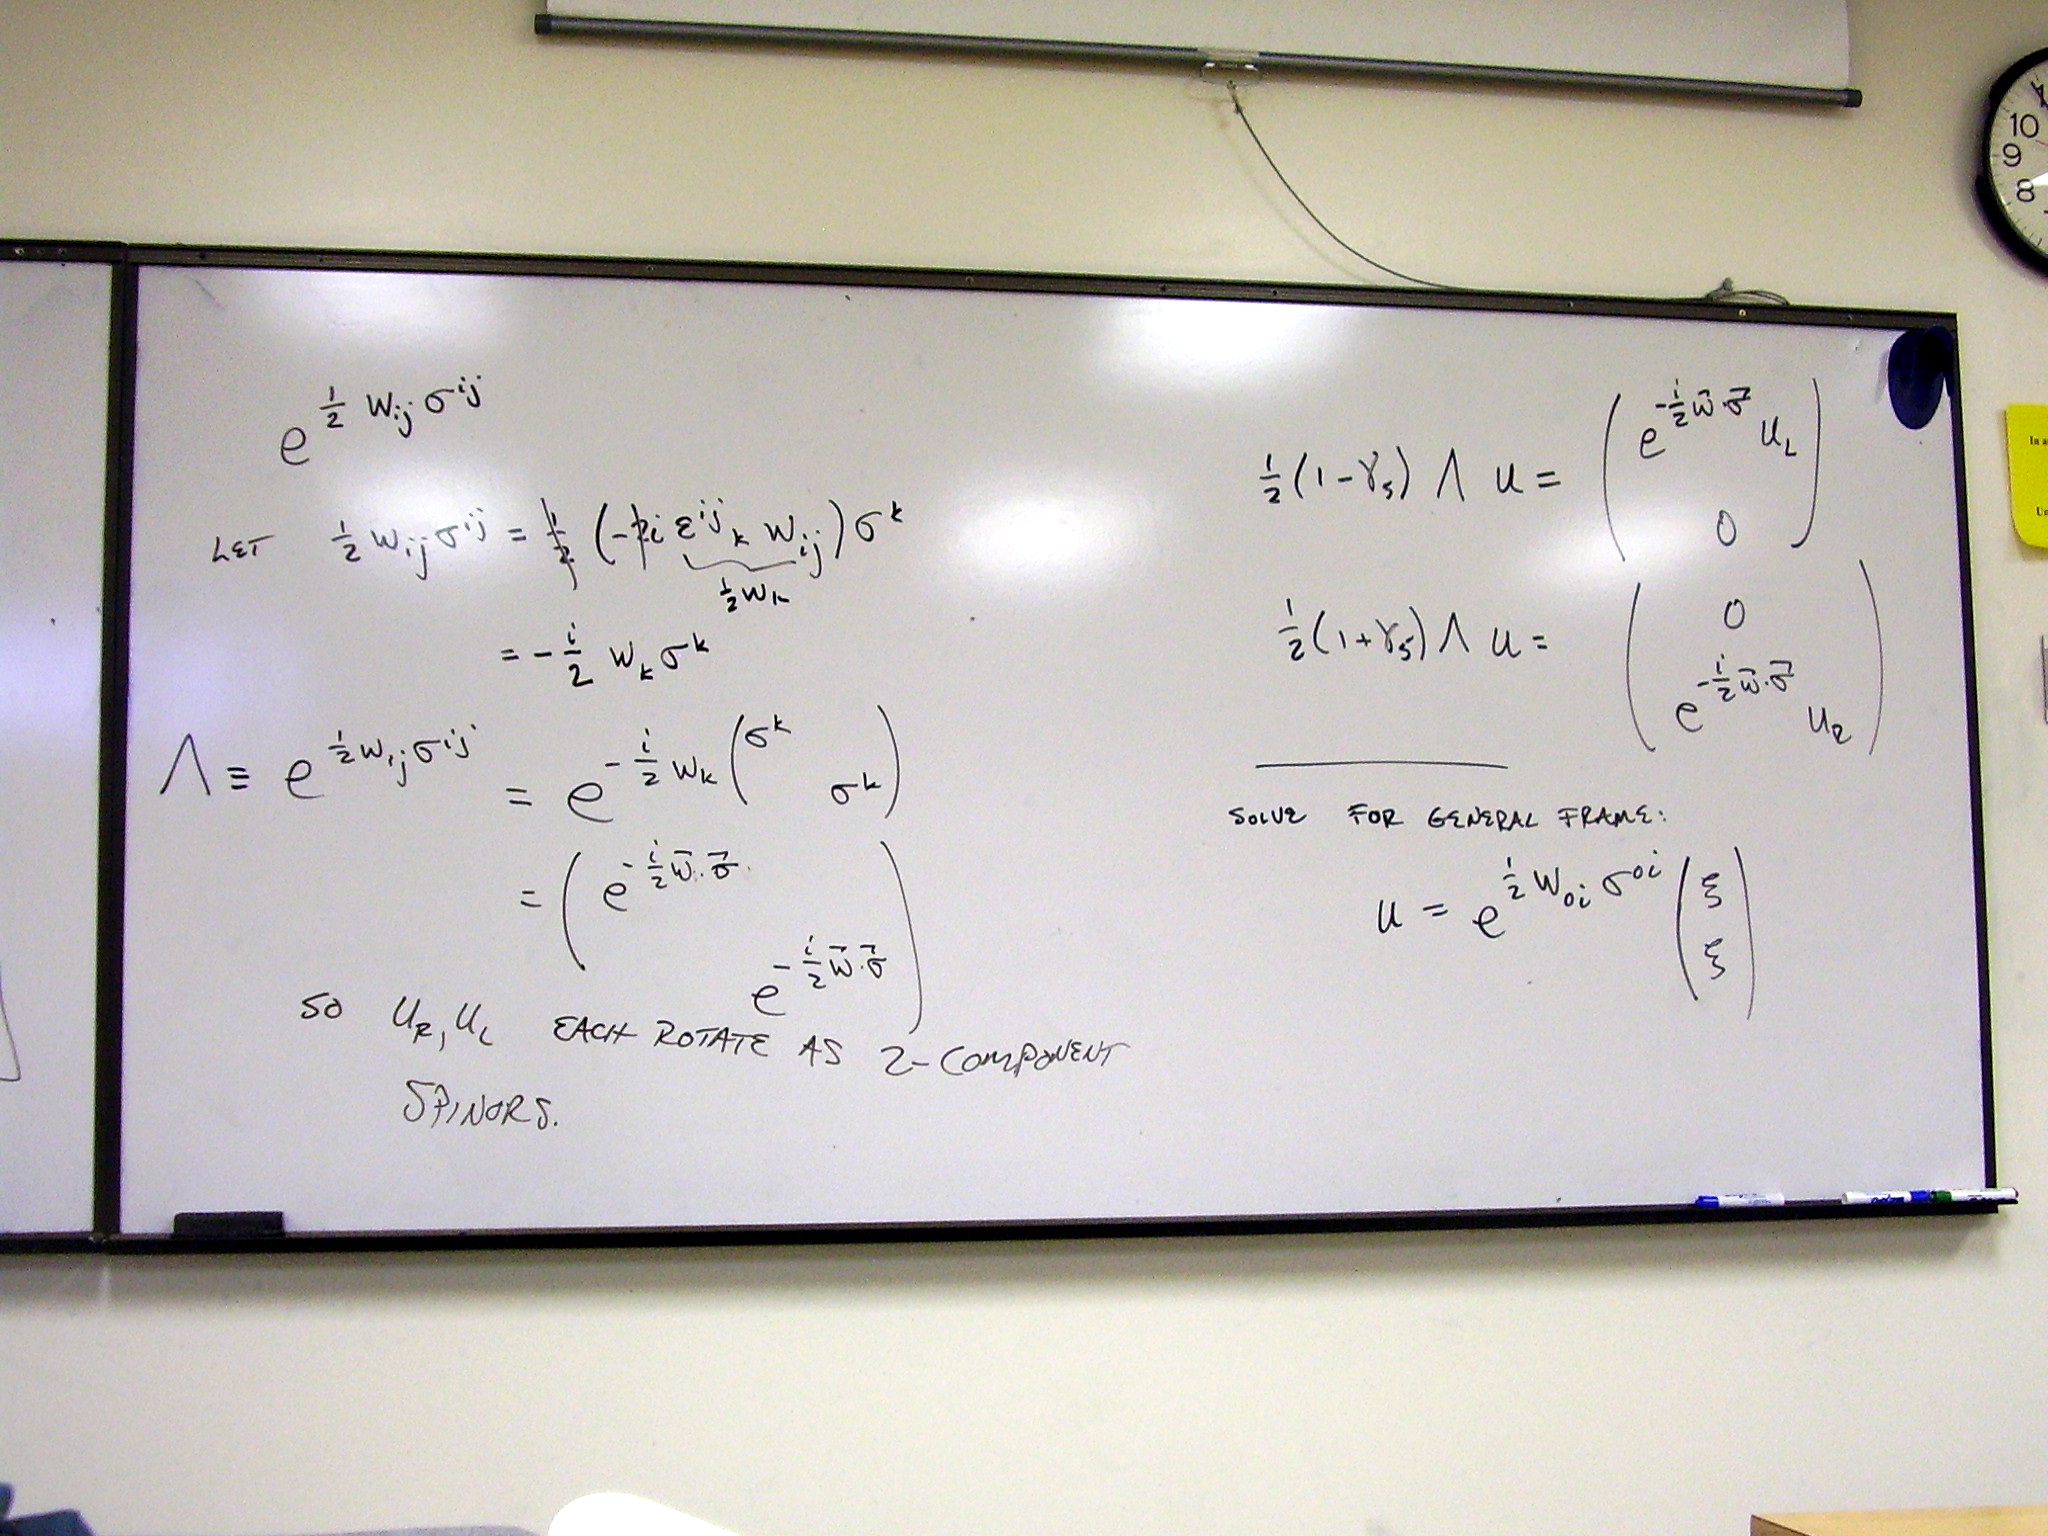 e^{½ w_{ij} σ^{ij}}
LET ½ w_{ij} σ^{ij} = ½ (-2i ε^{ij}_k w_{ij}) σ^k
½ w_k
= - i/2 w_k σ^k
Λ ≡ e^{½ w_{ij} σ^{ij}} = e^{- i/2 w_k (σ^k σ^k)}
= ( e^{- i/2 w⃗·σ⃗}
e^{- i/2 w⃗·σ⃗} )
SO u_R, u_L EACH ROTATE AS 2-COMPONENT
SPINORS.
½ (1 - γ_5) Λ u = ( e^{- i/2 w⃗·σ⃗} u_L
0 )
½ (1 + γ_5) Λ u = ( 0
e^{- i/2 w⃗·σ⃗} u_R )
SOLVE FOR GENERAL FRAME:
u = e^{½ w_{0i} σ^{0i}} ( ξ
ξ )
10
9
8
In